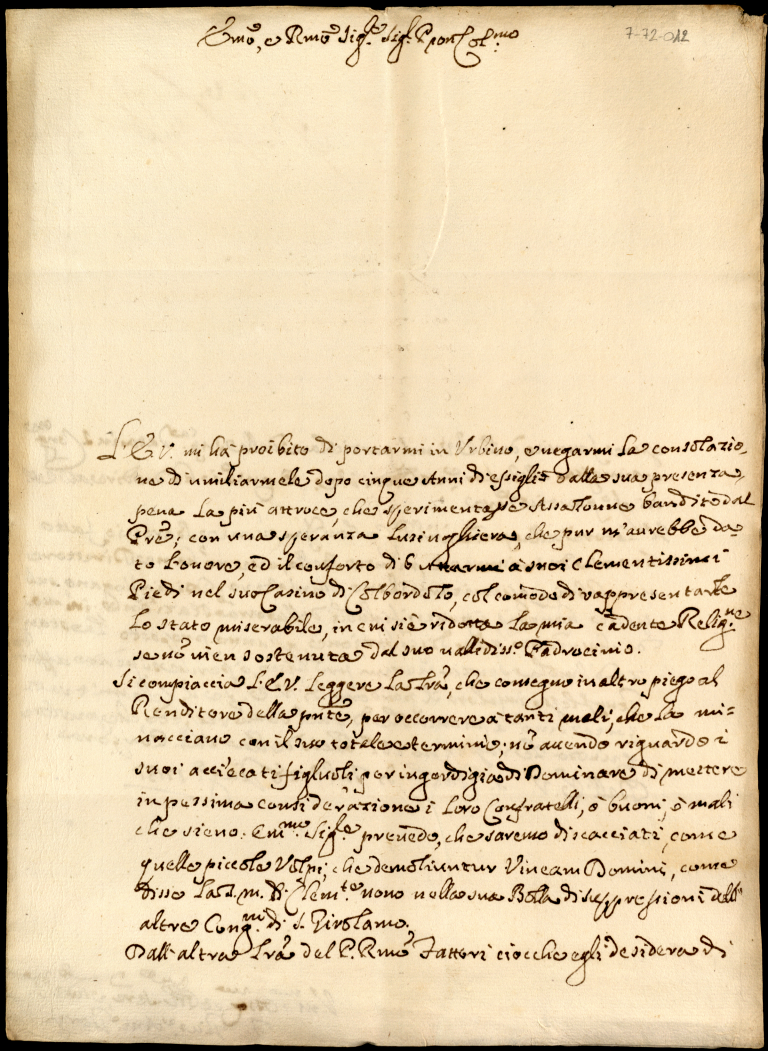 Emõ, e Rmõ Sig.re Sig.r P̃ron Col.mo
7-72-012
L'E.V. mi ha proibito di portarmi in Urbino, e negarmi la consolazio-
ne di umiliarmele dopo cinque Anni di essiglio dalla sua presenza,
pena la più attroce, che sperimentasse Assalonne bandito dal
Prẽ; con una speranza lusinghiera, che pur m'aurebbe da-
to l'onore, ed il conforto di à suoi Clementissimi
Piedi nel suo Casino di Colbordolo, col comodo di rappresentarle
lo stato miserabile, in cui si è ridotta la mia cadente Relig.ne
se nõ vien sostenuta dal suo validiss.o Padrocinio.
Si compiaccia L'E.V. leggere la Lrã, che consegno in altro piego al
Renditore della pñte, per occorrere à tanti mali, che la mi=
nacciano con il suo totale esterminio, nõ avendo riguardo i
suoi acciecati figliuoli per ingordigia di Dominare di mettere
in pessima considerazione i loro Confratelli, ò buoni, ò mali
che sieno. Em.mo Sig.re prevedo, che saremo discacciati, come
quelle piccole Volpi, che demoliuntur Vineam Domini, come
disse la S.m. di Clem.te nono nella sua Bolla di suppressioni dell'
altre Cong.ni di S. Girolamo.
Dall'altra Lrã del P. Rmõ Fattori ciocche egli desidera di